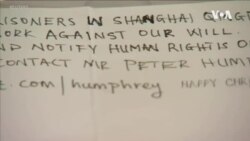 VOA
RISONERS IN SHANGHAI
ORK AGAINST OUR WILL.
ND NOTIFY HUMAN RIGHTS O
CONTACT MR PETER HUM
E.COM/humphrey HAPPY CHR